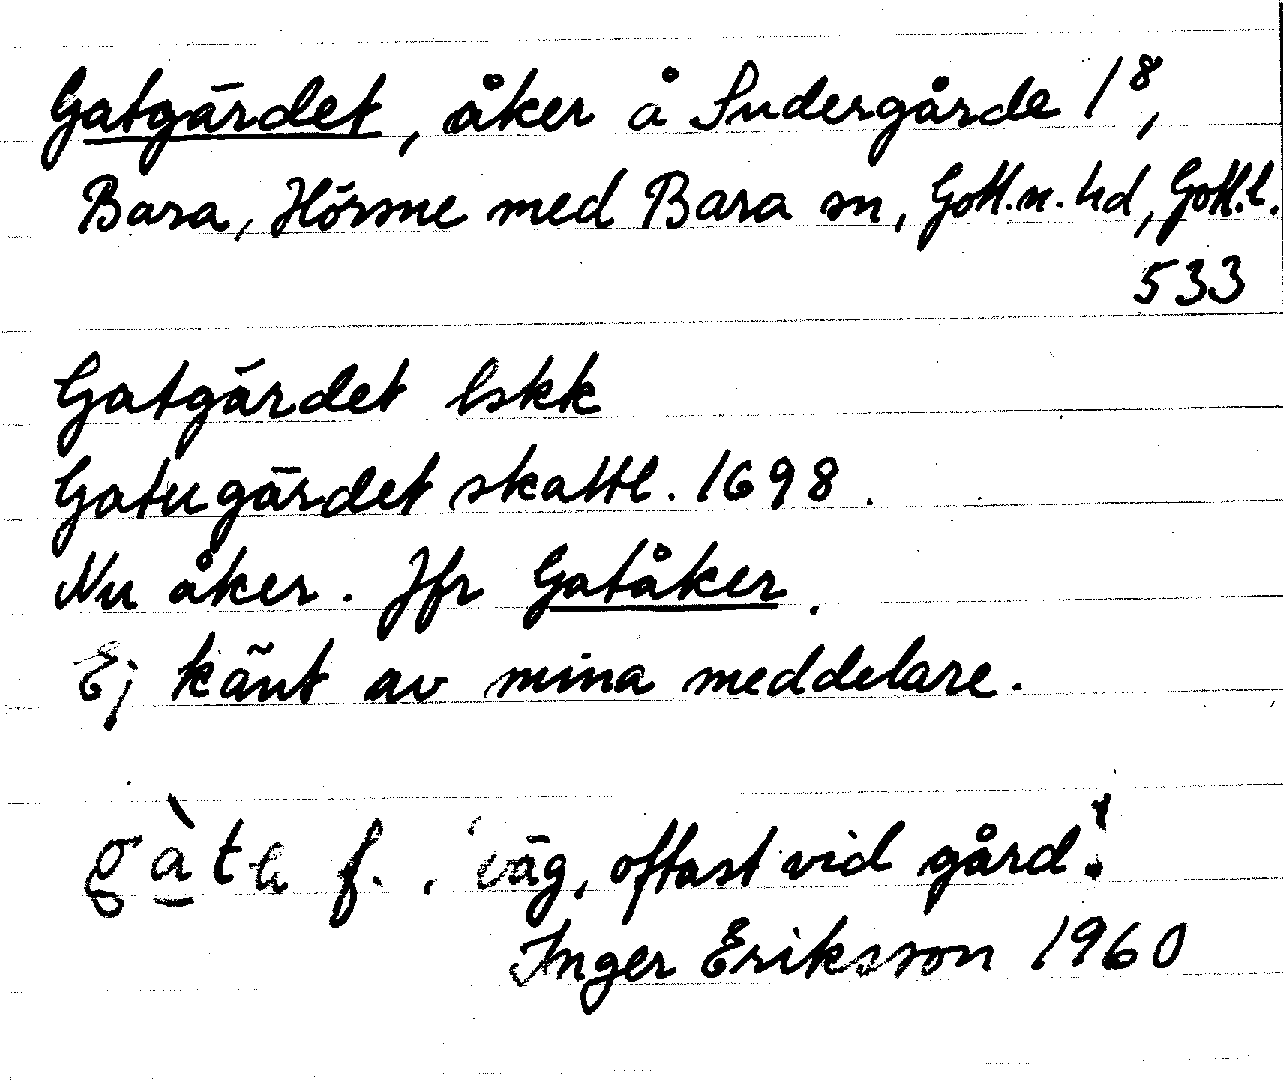 Gatgärdet, åker å Sudergårde 1⁸,
Bara, Hörsne med Bara sn, Gotl.n.hd, Gotl.l.
533
Gatgärdet lskk
Gatugärdet skattl. 1698.
Nu åker. Jfr Gatåker.
Ej känt av mina meddelare.
gàta f. 'väg, oftast vid gård'.
Inger Eriksson 1960